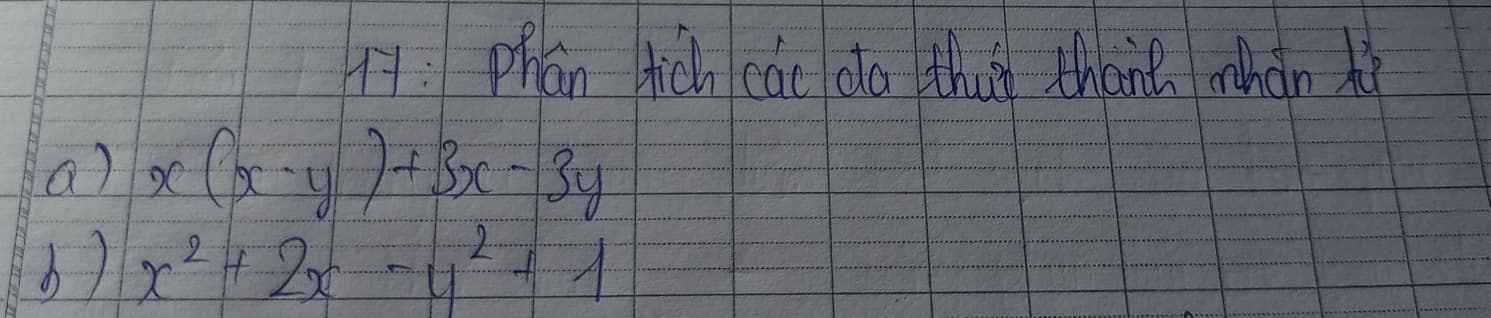 17: Phân tích các đa thức thành nhân tử
a) x(x-y)+3x-3y
b) x²+2x-y²+1